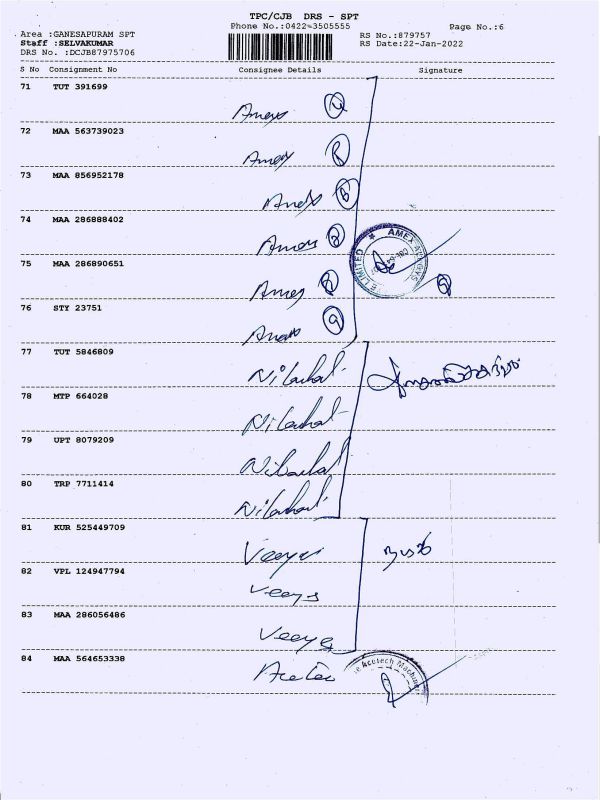 TPC/CJB DRS - SPT
Phone No.:0422-3505555
Page No.:6
Area :GANESAPURAM SPT
RS No.:879757
Staff :SELVAKUMAR
RS Date:22-Jan-2022
DRS No. :DCJB87975706
S No Consignment No Consignee Details Signature
71 TUT 391699
Amex
72 MAA 563739023
Amex
73 MAA 856952178
Amex
74 MAA 286888402
Amex
AMEX
LIMITED
75 MAA 286890651
Amex
76 STY 23751
Amex
77 TUT 5846809
Nilachal
78 MTP 664028
Nilachal
79 UPT 8079209
Nilachal
80 TRP 7711414
Nilachal
81 KUR 525449709
Veeys
82 VPL 124947794
Veeys
83 MAA 286056486
Veeys
84 MAA 564653338
Acutech Machine